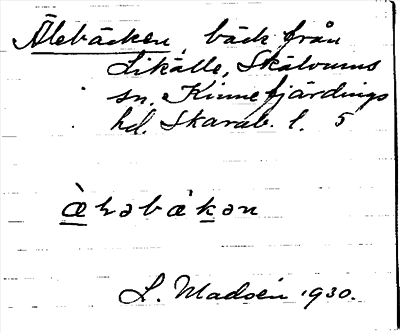 Älebäcken, bäck från
Likälle, Skälvums
sn. Kinnefjärdings
hd. Skarab. l. 5
æ̀ɿəbækən
L. Madsén 1930.